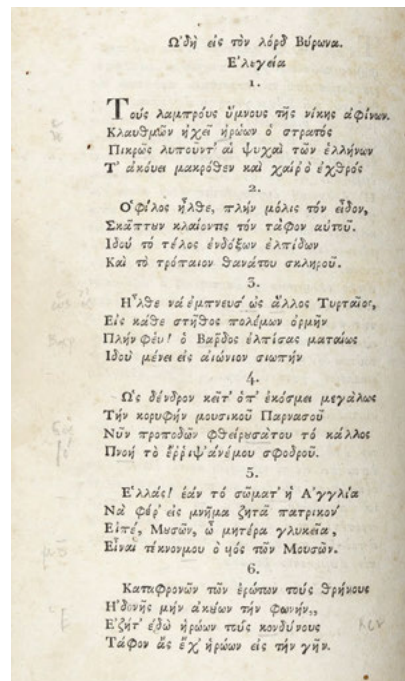 Ὠδὴ εἰς τὸν λόρδ Βύρωνα.
Ἐλεγεία
1.
Τοὺς λαμπροὺς ὕμνους τῆς νίκης ἀφίνων.
Κλαυθμῶν ἠχεῖ ἡρώων ὁ στρατός
Πικρῶς λυποῦντ' αἱ ψυχαὶ τῶν ἑλλήνων
Τ' ἀκούει μακρόθεν καὶ χαίρ' ὁ ἐχθρός
2.
Ὁ φίλος ἦλθε, πλὴν μόλις τὸν εἶδον,
Σκάπτουν κλαίοντες τὸν τάφον αὐτοῦ.
Ἰδοὺ τὸ τέλος ἐνδόξων ἐλπίδων
Καὶ τὸ τρόπαιον θανάτου σκληροῦ.
3.
Ἦλθε νὰ ἐμπνευσ' ὡς ἄλλος Τυρταῖος,
Εἰς κάθε στῆθος πολέμων ὁρμὴν
Πλὴν φεῦ! ὁ Βάρδος ἐλπίσας ματαίως
Ἰδοὺ μένει εἰς αἰώνιον σιωπήν
4.
Ὡς δένδρον κεῖτ' ὁπ' ἐκόσμει μεγάλως
Τὴν κορυφὴν μουσικοῦ Παρνασοῦ
Νῦν προποδῶν φθείρουσα του τὸ κάλλος
Πνοὴ τὸ ἔῤῥιψ' ἀνέμου σφοδροῦ.
5.
Ἑλλάς! ἐάν τὸ σῶματ' ἡ Ἀγγλία
Νὰ φέρ' εἰς μνῆμα ζητᾶ πατρικόν
Εἰπέ, Μουσῶν, ὦ μητέρα γλυκεῖα,
Εἶναι τέκνον μου ὁ υἱός τῶν Μουσῶν.
6.
Καταφρονῶν τῶν ἐρώτων τοὺς θρήνους
Ἡδονῆς μὴν ἀκούων τὴν φωνήν,,
Ἐζήτ' ἐδὼ ἡρώων τοὺς κονδύνους
Τάφον ἂς ἔχ' ἡρώων εἰς τὴν γῆν.